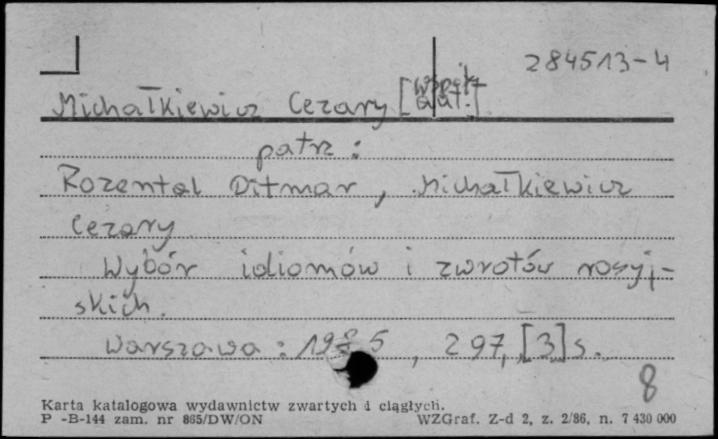 284513-4
Michałkiewicz Cezary [współ
aut.]
patrz:
Rozental Ditmar, Michałkiewicz
Cezary
Wybór idiomów i zwrotów rosyj-
skich.
Warszawa: 1985, 297, [3] s.
8
Karta katalogowa wydawnictw zwartych i ciągłych.
P -B-144 zam. nr 865/DW/ON WZGraf. Z-d 2, z. 2/86, n. 7 430 000